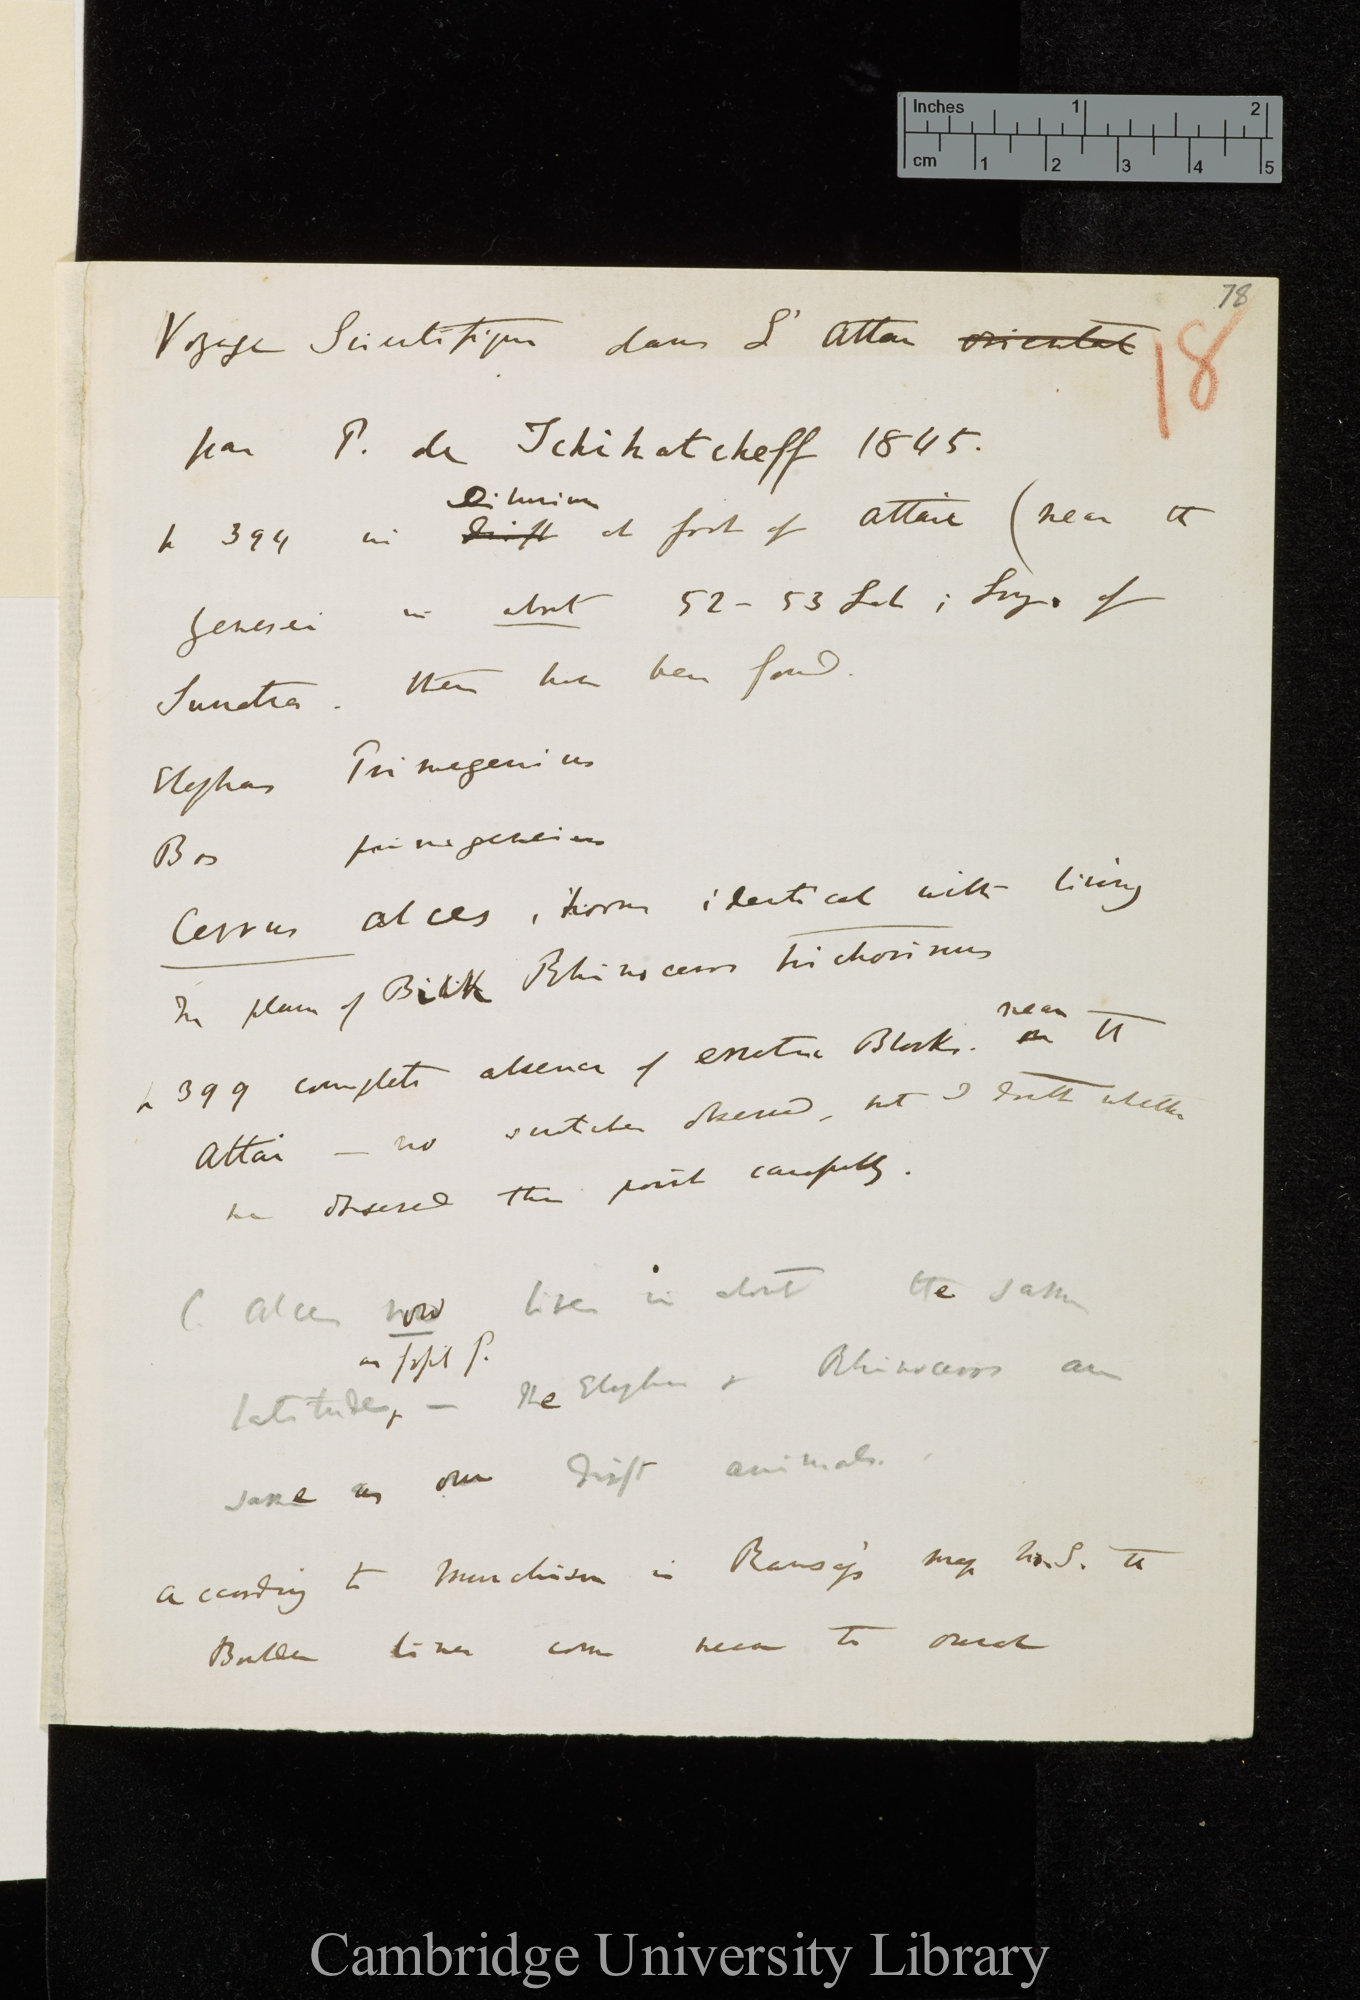 Inches 1 2
cm 1 2 3 4 5
78
18
Voyage Scientifique dans L' Altai oriental
par P. de Tchihatcheff 1845.
Diluvium
p 394 in drift at foot of Altai (near the
Jenesei in about 52-53 Lat ; Long. of
Sumatra. there have been found.
Elephas Primegenius
Bos primegeneius
Cervus alces, horns identical with living
In plain of Rhinoceros trichorinus
near
p 399 complete absence of erratic Blocks. on the
Altai — no scratches observed, but I doubt whether
he observed this point carefully.
C. Alces now lives in about the same
as fossil
latitudes, — The Elephas & Rhinoceros are
same as our Drift animals.
According to Murchison in Ramsay's map the
Boulder lines come near to
Cambridge University Library